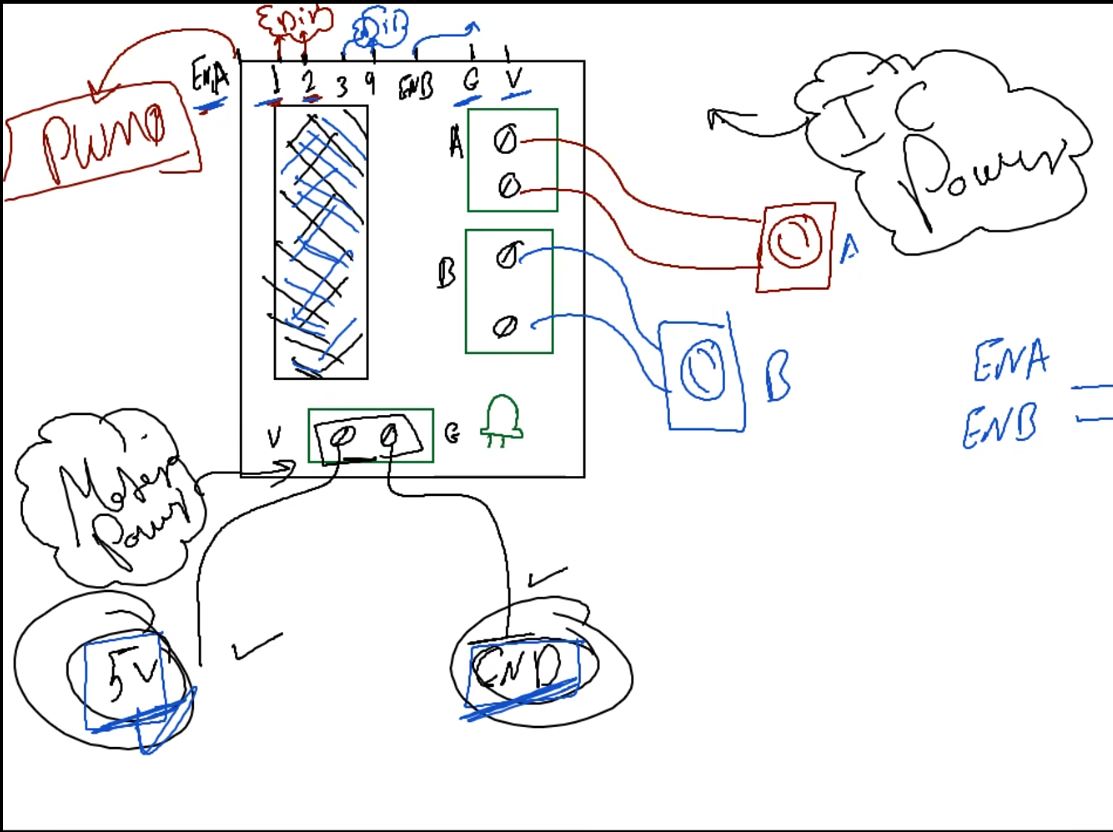 ENA 1 2 3 4 ENB G V
PWM
IC
Power
A
A
B
B
ENA
ENB
V G
Motor
Power
5V
GND